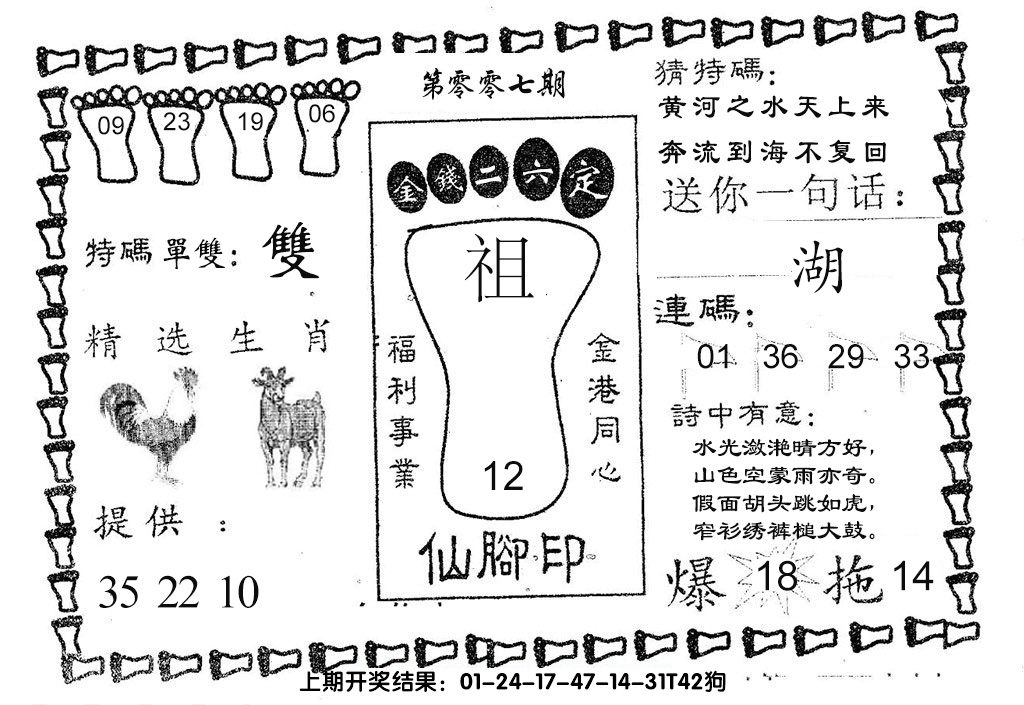 第零零七期
09 23 19 06
特碼單雙：雙
精选生肖
提供：
35 22 10
金錢二六定
祖
福利事業
金港同心
12
仙腳印
猜特碼：
黄河之水天上来
奔流到海不复回
送你一句话：
湖
連碼：
01 36 29 33
詩中有意：
水光潋滟晴方好，
山色空蒙雨亦奇。
假面胡头跳如虎，
窄衫绣裤槌大鼓。
爆 18 拖 14
上期开奖结果：01-24-17-47-14-31T42狗